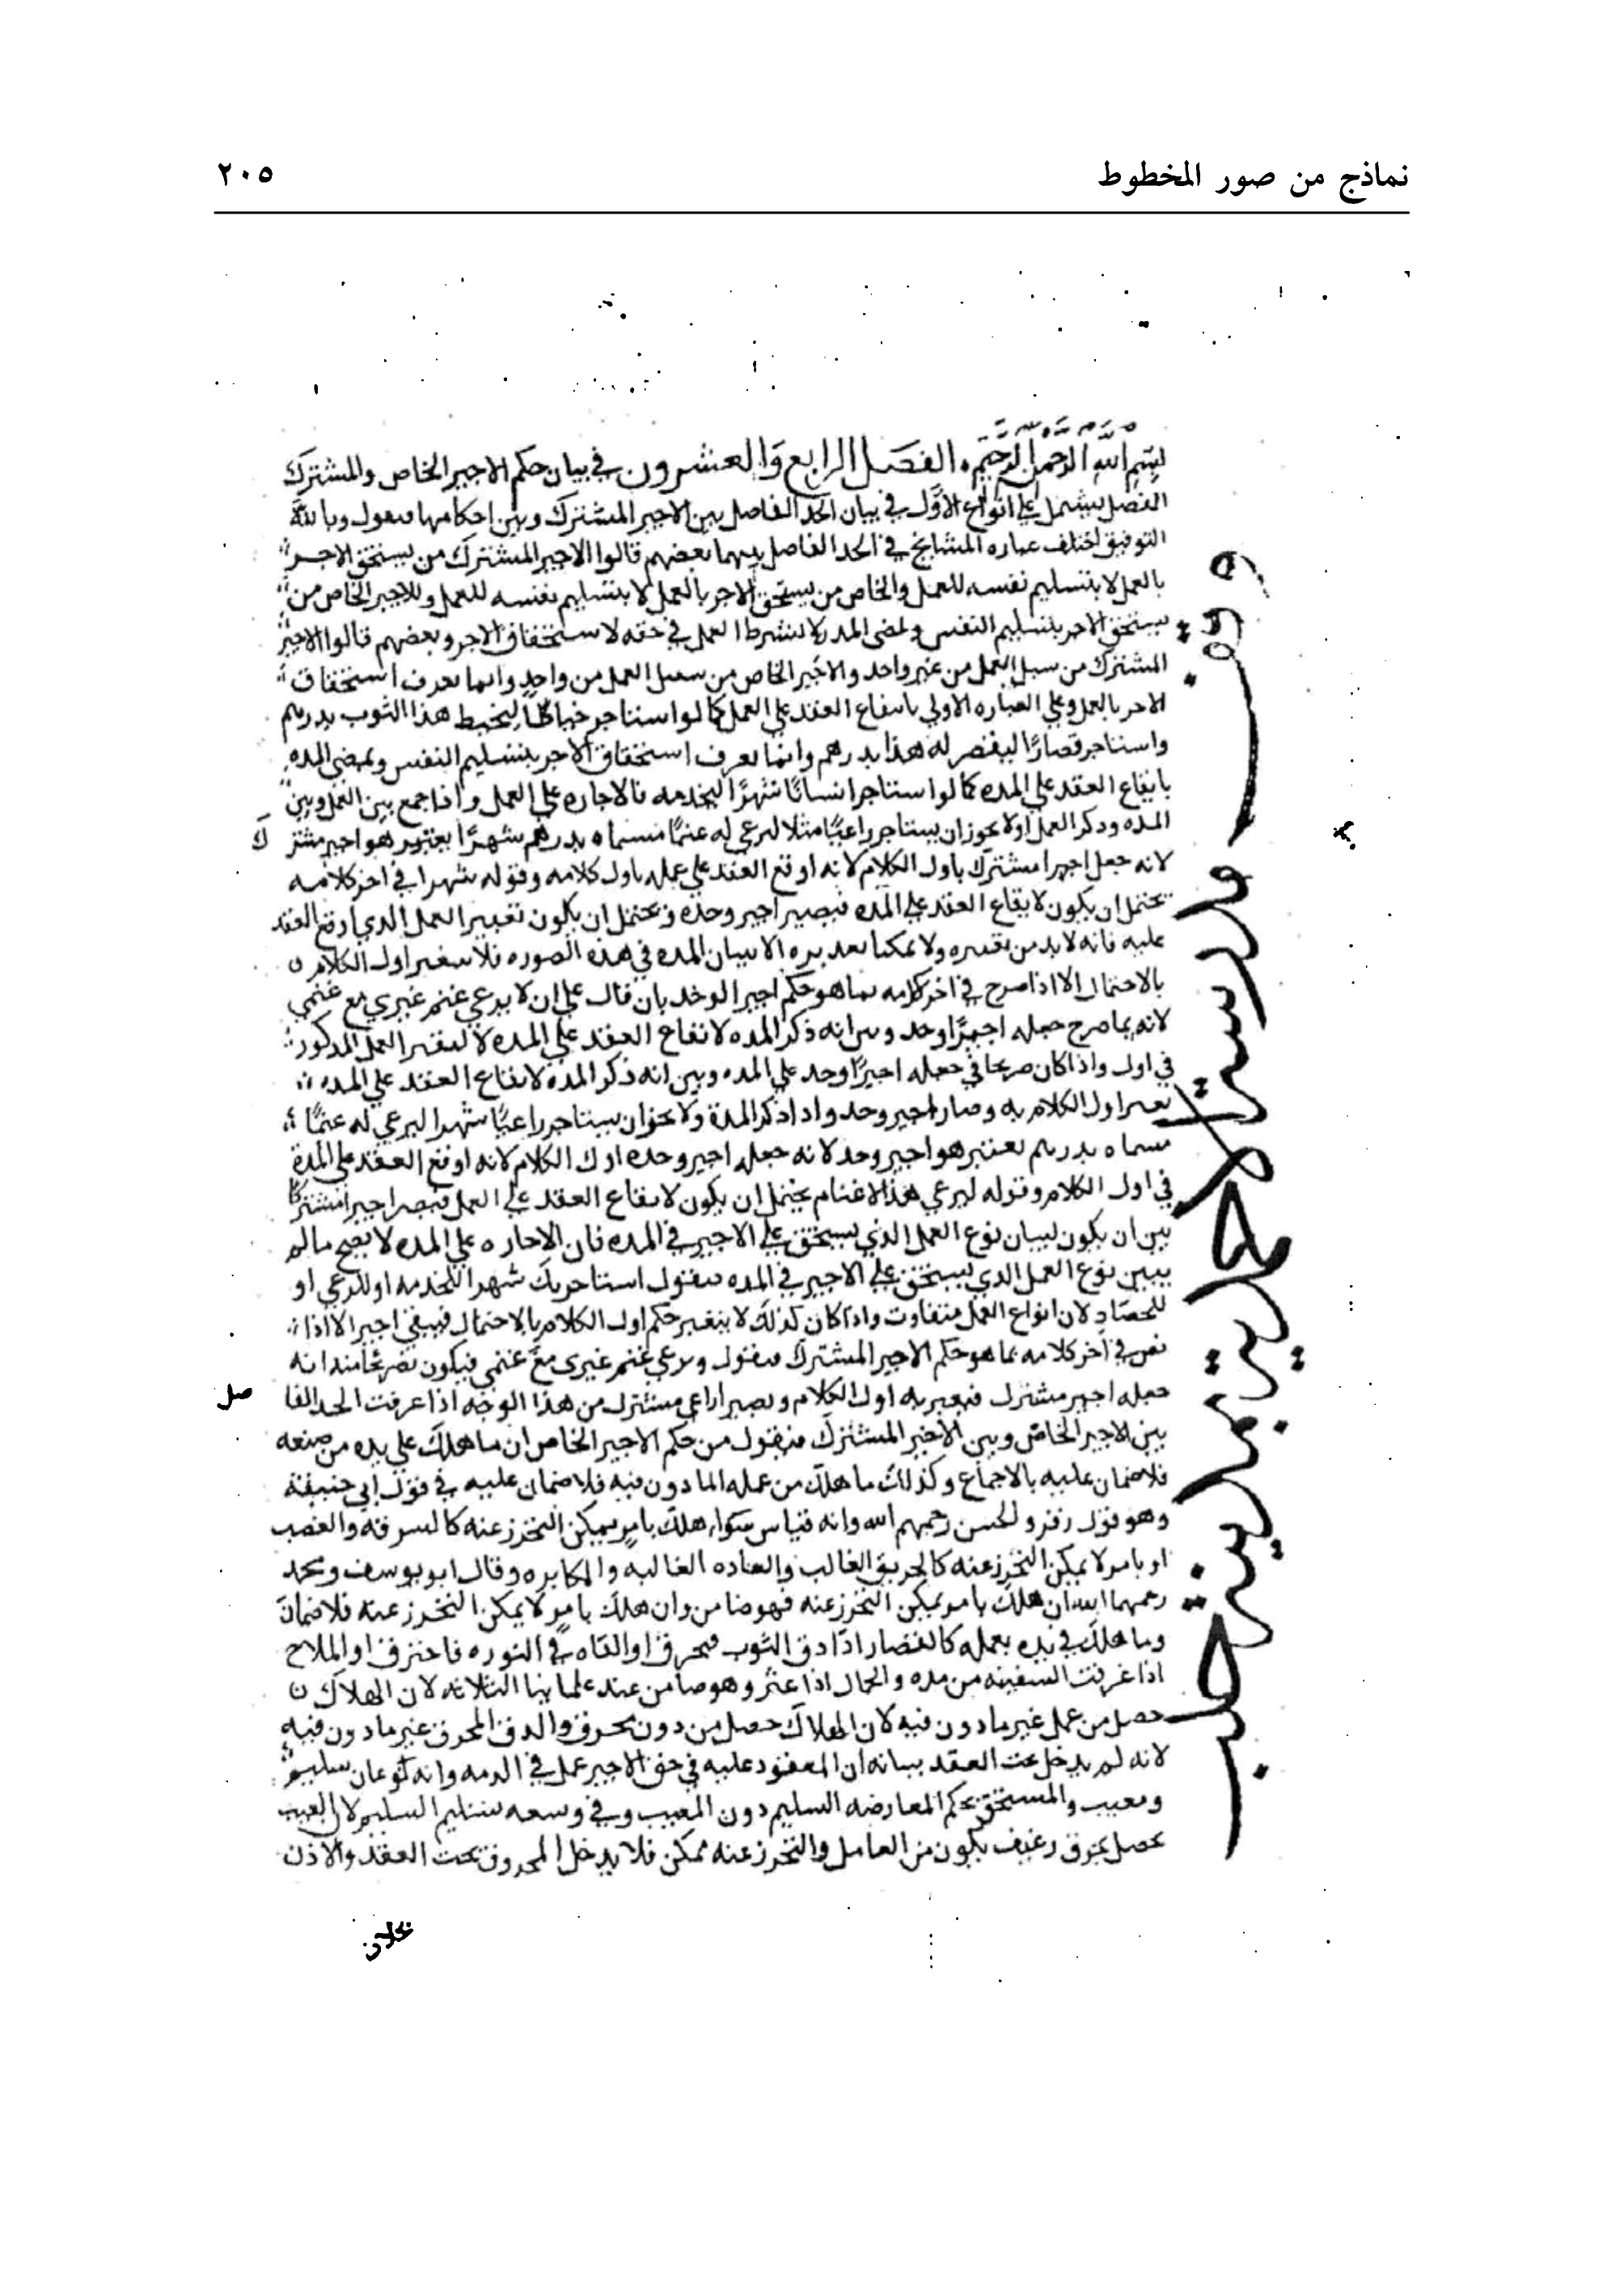 نماذج من صور المخطوط
٢٠٥
بسم الله الرحمن الرحيم، الفصل الرابع والعشرون في بيان حكم الاجير الخاص والمشترك
الفصل يشتمل على انواع الاول في بيان الحد الفاصل بين الاجير المشترك وبين احكامها فنقول وبالله
التوفيق اختلف عباره المشايخ في الحد الفاصل بينهما بعضهم قالوا الاجير المشترك من يستحق الاجر
بالعمل لا بتسليم نفسه للعمل والخاص من يستحق الاجر بالعمل لا بتسليم نفسه للعمل وللاجير الخاص من
يستحق الاجر بتسليم النفس ولمضى المده لا يشترط العمل في حقه لاستحقاق الاجر وبعضهم قالوا الاجير
المشترك من سبل العمل من غير واحد والاجير الخاص من العمل من واحد وانما يعرف استحقاق
الاجر بالعمل وعلى العباره الاولى بايقاع العقد على العمل كما لو استاجر خياطا ليخيط هذا الثوب بدرهم
واستاجر قصارا ليقصر له هذا بدرهم وانما يعرف استحقاق الاجر بتسليم النفس ولمضى المده
بايقاع العقد على المده كما لو استاجر انسانا شهرا ليخدمه فالاجاره على العمل واذا جمع بين العمل وبين
المده وذكر العمل اولا نحو ان يستاجر راعيا مثلا لرعى له غنما مسماه بدرهم شهرا يعتبر هو اجير مشترك
لانه جعل اجيرا مشترك باول الكلام لانه اوقع العقد على عمله باول كلامه وقوله شهرا في اخر كلامه
يحتمل ان يكون لايقاع العقد على المده فيصير اجير وحده ويحتمل ان يكون تقييرا العمل الذي اوقع العقد
عليه فانه لا بد من تقديره ولا يمكنا تقديره الا ببيان المده في هذه الصوره فلا يتغير اول الكلام
بالاحتمال الا اذا صرح في اخر كلامه بما هو حكم اجير الوحد بان قال على ان لا يرعى غنم غيري مع غنمي
لانه بما صرح جعله اجيرا وحد وبين انه ذكر المده لايقاع العقد على المده لا لتقدير العمل المذكور
في اول واذا كان صريحا في جعله اجيرا وحد على المده وبين انه ذكر المده لايقاع العقد على المده
تغير اول الكلام به وصار اجير وحد واذا ذكر المدة ولا نحو ان يستاجر راعيا شهرا ليرعى له غنما
مسماه بدرهم يعتبر هو اجير وحد لانه جعله اجير وحده اول الكلام لانه اوقع العقد على المدة
في اول الكلام وقوله ليرعى هذا الاغنام يحتمل ان يكون لايقاع العقد على العمل فيصير اجيرا مشتركا
بين ان يكون لبيان نوع العمل الذي يستحق على الاجير في المده فان الاجاره على المده لا يصح ما لم
يبين نوع العمل الذي يستحق على الاجير في المده فنقول استاجرتك شهرا للخدمه او للرعي او
للحصاد لان انواع العمل متفاوت واذا كان كذلك لا يتغير حكم اول الكلام بالاحتمال فيبقى اجير الا اذا
نص في آخر كلامه بما هو حكم الاجير المشترك فنقول ويرعى غنم غيرى مع غنمى فيكون تصريحا منه انه
جعله اجير مشترك فتغير به اول الكلام ويصير راعى مشترك من هذا الوجه اذا عرفت الحد الفاصل
بين الاجير الخاص وبين الاجير المشترك فنقول من حكم الاجير الخاص ان ما هلك على يده من صنعه
فلا ضمان عليه بالاجماع وكذلك ما هلك من عمله الماذون فيه فلا ضمان عليه في قول ابي حنيفة
وهو قول زفر والحسن رحمهم الله وانه قياس سواء هلك بامر يمكن التحرز عنه كالسرقه والغصب
او بامر لا يمكن التحرز عنه كالحريق الغالب والعاده الغالبه والمكابره وقال ابو يوسف ومحمد
رحمهما الله ان هلك بامر يمكن التحرز عنه فهو ضامن وان هلك بامر لا يمكن التحرز عنه فلا ضمان
وما هلك في يده بعمله كالقصار اذا دق الثوب فتحرق او القاه في النوره فاحترق او الملاح
اذا غرقت السفينه من مده والحمال اذا عثر وهو ضامن عند علمائنا الثلاثه لان الهلاك
حصل من عمل غير ماذون فيه لان الهلاك حصل من دون محرق والدق المحرق غير ماذون فيه
لانه لم يدخل تحت العقد بيانه ان المعقود عليه في حق الاجير عمل في الذمه وانه نوعان سليم
ومعيب والمستحق بحكم المعارضه السليم دون المعيب وفي وسعه تسليم السليم لان العيب
يحصل بخرق رعنف يكون من العامل والتحرز عنه ممكن فلا يدخل المحروق تحت العقد والاذن